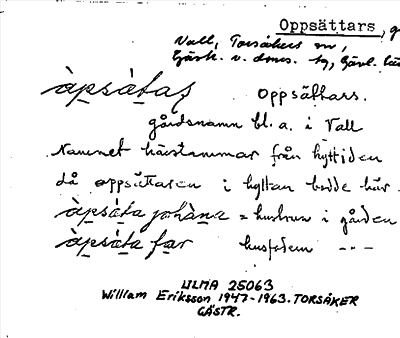 Oppsättars, g
Vall, Torsåkers sn,
Gästr. v. doms. hg, Gävl. län
àpsàtas oppsättars.
gårdsnamn bl. a. i Vall
Namnet härstammar från hyttiden
då oppsättaren i hyttan bodde här.
àpsàta johàna = hustrun i gården
àpsàta far husfadern - - -
ULMA 25063
William Eriksson 1947-1963. TORSÅKER
GÄSTR.